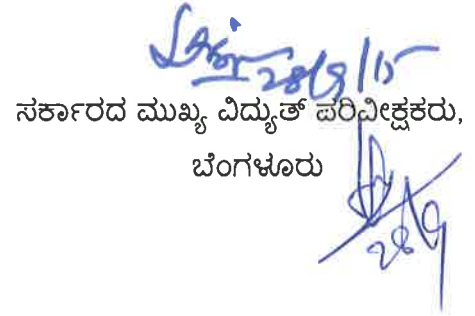 28/9/15
ಸರ್ಕಾರದ ಮುಖ್ಯ ವಿದ್ಯುತ್ ಪರಿವೀಕ್ಷಕರು,
ಬೆಂಗಳೂರು